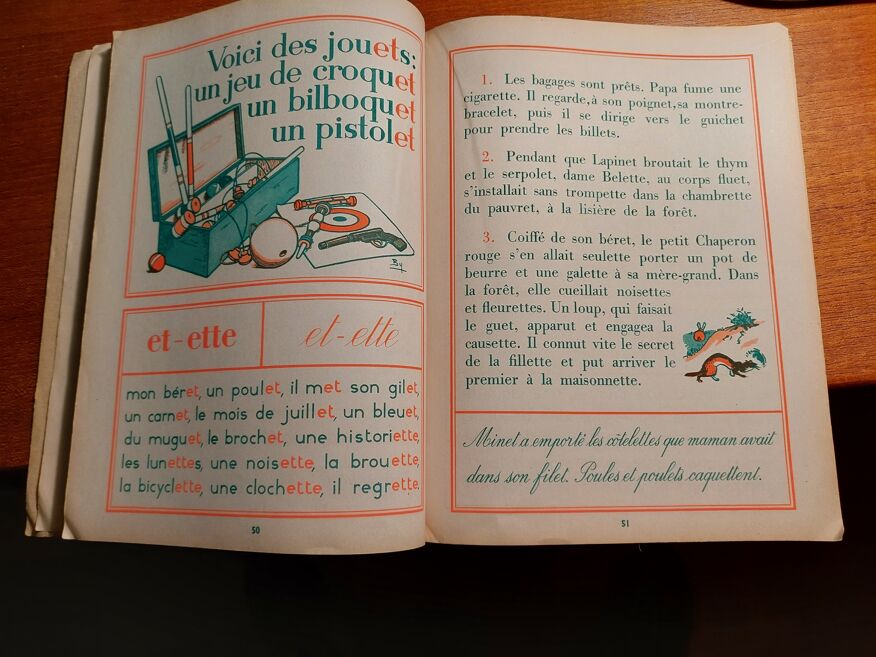 Voici des jouets:
un jeu de croquet
un bilboquet
un pistolet
By
et-ette
et-ette
mon béret, un poulet, il met son gilet,
un carnet, le mois de juillet, un bleuet,
du muguet, le brochet, une historiette,
les lunettes, une noisette, la brouette,
la bicyclette, une clochette, il regrette.
50
1. Les bagages sont prêts. Papa fume une
cigarette. Il regarde, à son poignet, sa montre-
bracelet, puis il se dirige vers le guichet
pour prendre les billets.
2. Pendant que Lapinet broutait le thym
et le serpolet, dame Belette, au corps fluet,
s'installait sans trompette dans la chambrette
du pauvret, à la lisière de la forêt.
3. Coiffé de son béret, le petit Chaperon
rouge s'en allait seulette porter un pot de
beurre et une galette à sa mère-grand. Dans
la forêt, elle cueillait noisettes
et fleurettes. Un loup, qui faisait
le guet, apparut et engagea la
causette. Il connut vite le secret
de la fillette et put arriver le
premier à la maisonnette.
Minet a emporté les côtelettes que maman avait
dans son filet. Poules et poulets caquettent.
51